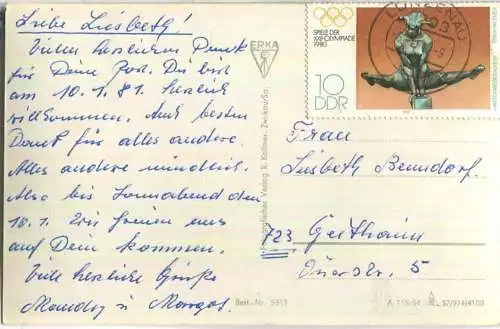 Liebe Liesbeth!
Vielen herzlichen Dank
für Deine Post. Du bist
am 10.1.81 herzlich
willkommen. Auch besten
Dank für alles andere.
Alles andere mündlich.
Also bis Sonnabend den
10.1. Wir freuen uns
auf Dein kommen.
Viele herzliche Grüße
Mandy u. Margot.
ERKA
Fotografischer Verlag R. Kallmer, Zwickau/Sa.
Best.-Nr. 5517
SPIELE DER
XXII. OLYMPIADE
1980
10
DDR
LUNZENAU
Frau
Liesbeth Benndorf.
723 Geithain
Querstr. 5
A 715-54 IV 57/974/4100